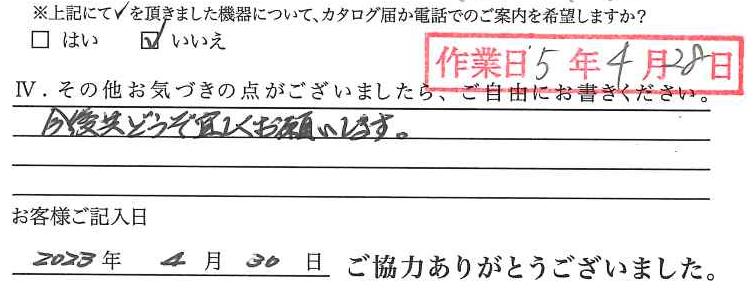 ※上記にて✓を頂きました機器について、カタログ届か電話でのご案内を希望しますか?
□ はい ☑ いいえ
作業日 5年4月28日
Ⅳ．その他お気づきの点がございましたら、ご自由にお書きください。
今後共どうぞ宜しくお願いします。
お客様ご記入日
2023年 4月30日 ご協力ありがとうございました。